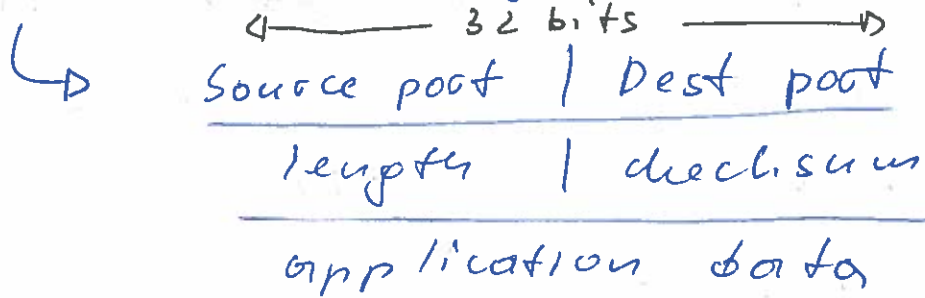 32 bits
Source port | Dest port
length | checksum
application data